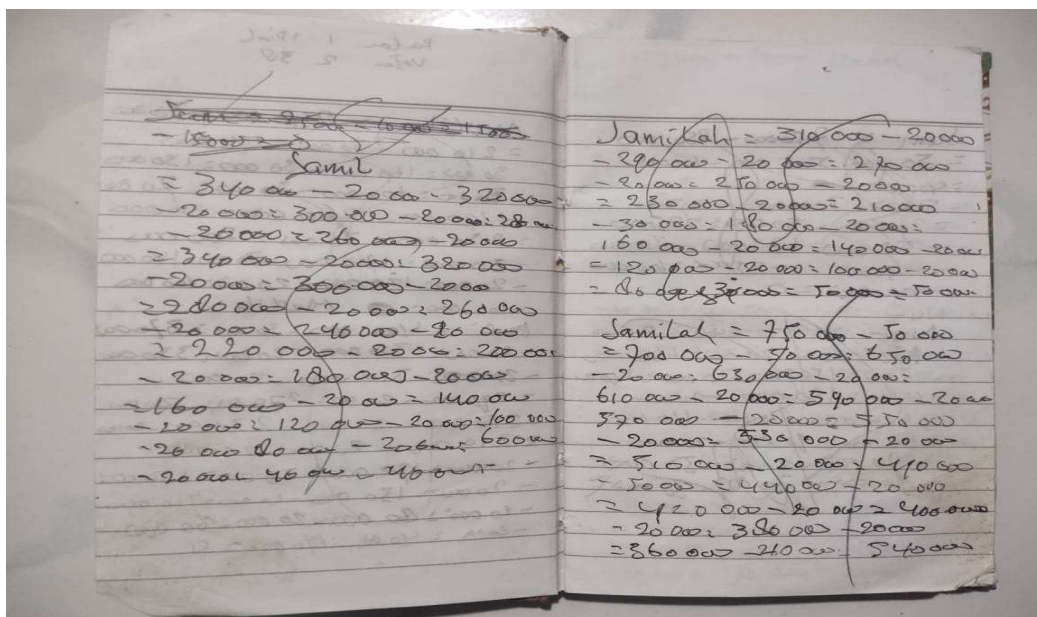 - 15000 = 0
Samil
= 340 000 - 20 000 - 320 000
- 20 000 = 300 000 - 20 000 = 280 000
- 20 000 = 260 000 - 20 000
= 340 000 - 20000 = 320 000
- 20 000 = 300 000 - 2000
= 280 000 - 20 000 = 260 000
- 20 000 = 240 000 - 20 000
= 220 000 - 20 000 = 200 000
- 20 000 = 180 000 - 20 000
= 160 000 - 20 000 = 140 000
- 20 000 = 120 000 - 20 000 = 100 000
- 20 000 80 000 - 20 000 = 600 000
- 20 000 = 40 000 - 40 000 =
Jamikah = 310 000 - 20 000
- 290 000 - 20 000 = 270 000
- 20 000 = 250 000 - 20 000
= 230 000 - 20000 = 210 000
- 30 000 = 180 000 - 20 000 =
160 000 - 20 000 = 140 000 - 20 000
= 120 000 - 20 000 = 100 000 - 20 000
= 80 000 30 000 = 50 000 = 50 000
Samilah = 750 000 - 50 000
= 700 000 - 50 000 = 650 000
- 20 000 = 630 000 - 20 000 =
610 000 - 20 000 = 590 000 - 20 000
570 000 - 20 000 = 550 000
- 20 000 = 530 000 - 20 000
= 510 000 - 20 000 = 490 000
- 50 000 = 440 000 - 20 000
= 420 000 - 20 000 = 400 000
- 20 000 = 380 000 - 20 000
= 360 000 - 20 000 = 340 000